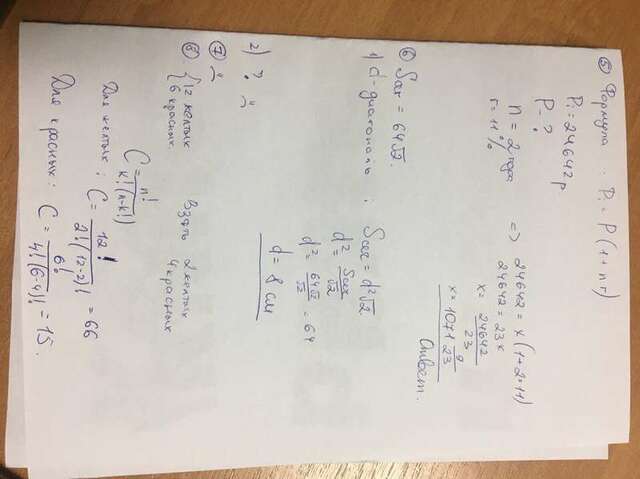 ⑤ Формула : P₁ = P(1+nr)
P₁ = 24642 р
P - ?
n = 2 года ⇒ 24642 = x(1+2·11)
r = 11% 24642 = 23x
x = 24642/23
x = 1071 9/23
Ответ.
⑥ Sсеч = 64√2.
1) d - диагональ ; Sсеч = d²√2
d² = Sсеч/√2
d² = 64√2/√2 = 64
d = 8 см
2) ?
⑦
⑧ {12 желтых Взять 2 желтых
6 красных 4 красных
C = n!/k!(n-k!)
Для желтых : C = 12!/2!(12-2)! = 66
Для красных : C = 6!/4!(6-4)! = 15.